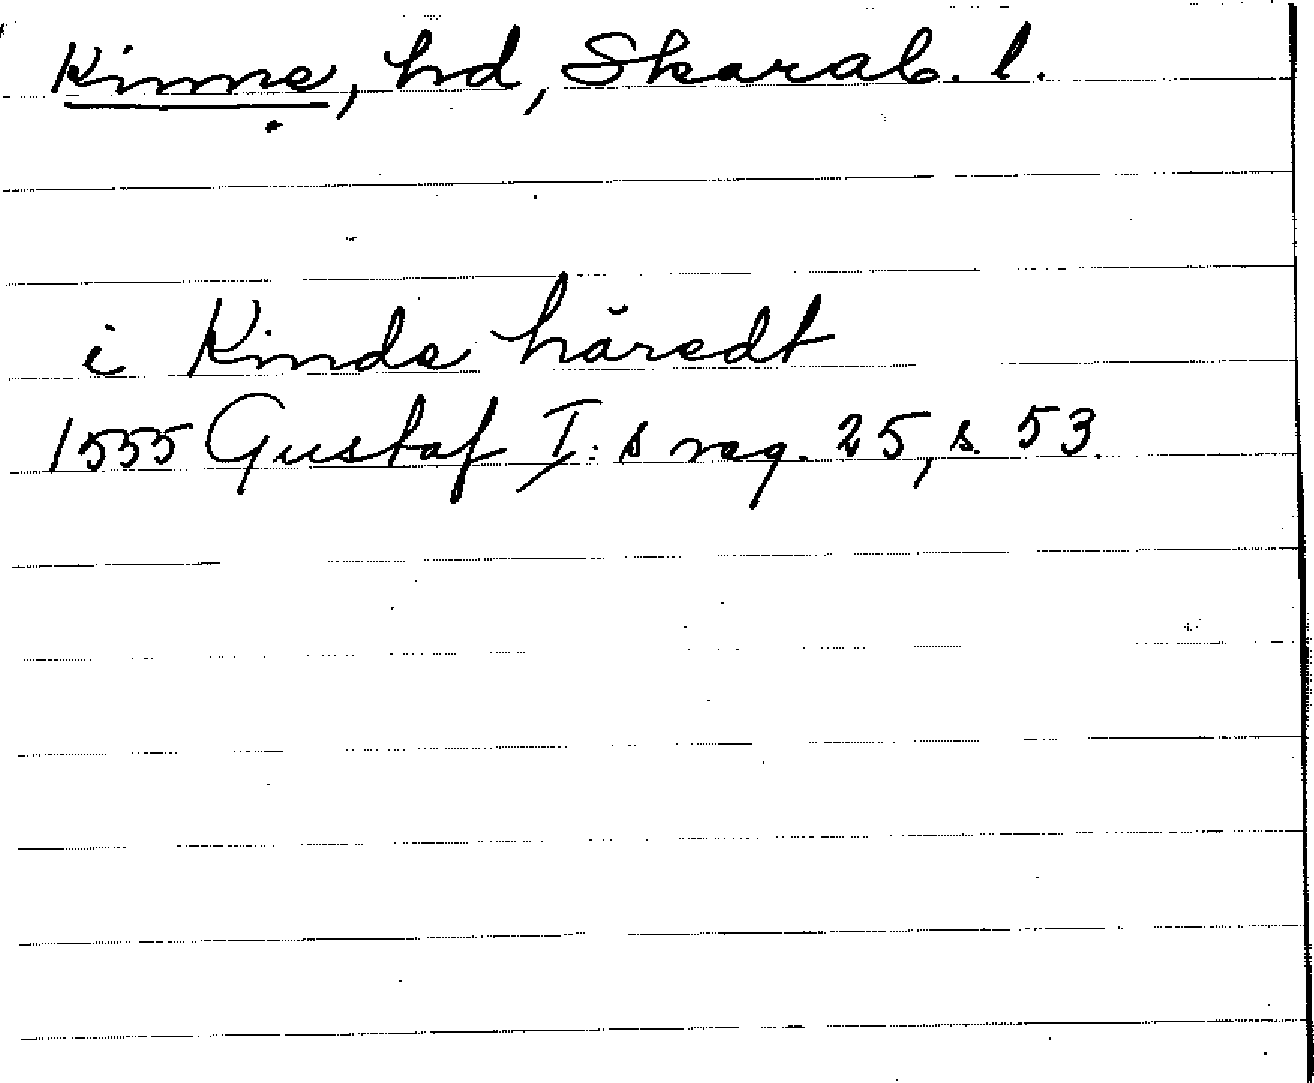 Kinne, hd, Skarab. l.
i Kinde häredt
1555 Gustaf I:s reg. 25, s. 53.